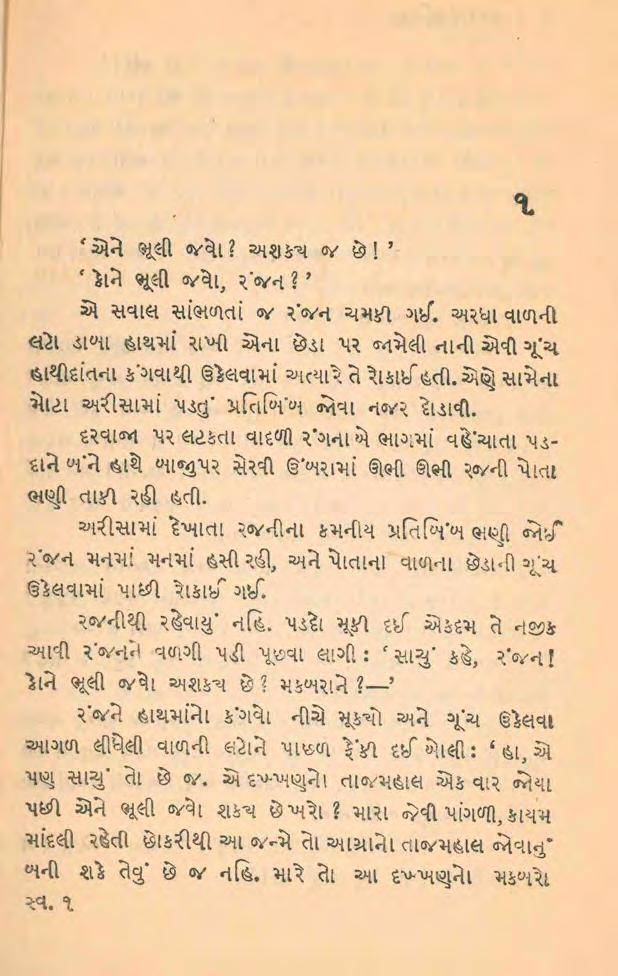 ૧
‘એને ભૂલી જવો? અશકય જ છે!’
‘કોને ભૂલી જવો, રંજન?’
એ સવાલ સાંભળતાં જ રંજન ચમકી ગઈ. અરધા વાળની
લટો ડાબા હાથમાં રાખી એના છેડા પર જામેલી નાની એવી ગૂંચ
હાથીદાંતના કંગવાથી ઉકેલવામાં અત્યારે તે રોકાઈ હતી. એણે સામેના
મોટા અરીસામાં પડતું પ્રતિબિંબ જોવા નજર દોડાવી.
દરવાજા પર લટકતા વાદળી રંગના બે ભાગમાં વહેંચાતા પડ-
દાને બંને હાથે બાજુપર સેરવી ઉંબરામાં ઊભી ઊભી રજની પોતા
ભણી તાકી રહી હતી.
અરીસામાં દેખાતા રજનીના કમનીય પ્રતિબિંબ ભણી જોઈ
રંજન મનમાં મનમાં હસી રહી, અને પોતાના વાળના છેડાની ગૂંચ
ઉકેલવામાં પાછી રોકાઈ ગઈ.
રજનીથી રહેવાયું નહિ. પડદો મૂકી દઈ એકદમ તે નજીક
આવી રંજનને વળગી પડી પૂછવા લાગી: ‘સાચું કહે, રંજન!
કોને ભૂલી જવો અશકય છે? મકબરાને?—’
રંજને હાથમાંનો કંગવો નીચે મૂકયો અને ગૂંચ ઉકેલવા
આગળ લીધેલી વાળની લટોને પાછળ ફેંકી દઈ બોલી: ‘હા, એ
પણ સાચું તો છે જ. એ દખ્ખણનો તાજમહાલ એક વાર જોયા
પછી એને ભૂલી જવો શકય છે ખરો? મારા જેવી પાંગળી, કાયમ
માંદલી રહેતી છોકરીથી આ જન્મે તો આગ્રાનો તાજમહાલ જોવાનું
બની શકે તેવું છે જ નહિ. મારે તો આ દખ્ખણનો મકબરો
સ્વ. ૧